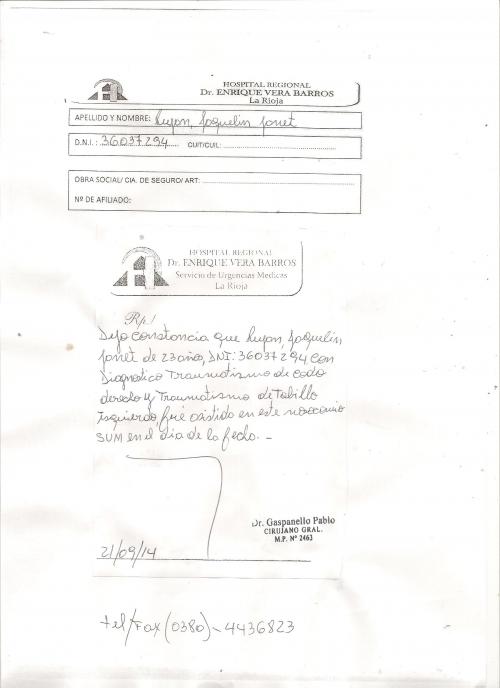 HOSPITAL REGIONAL
Dr. ENRIQUE VERA BARROS
La Rioja
APELLIDO Y NOMBRE: Luyan, Jaquelin Janet
D.N.I.: 36037294 CUIT/CUIL:
OBRA SOCIAL/ CIA. DE SEGURO/ ART:
Nº DE AFILIADO:
HOSPITAL REGIONAL
Dr. ENRIQUE VERA BARROS
Servicio de Urgencias Medicas
La Rioja
Rp/
Dejo constancia que Luyan, Jaquelin
Janet de 23 años, DNI: 36037294 con
Diagnostico Traumatismo de codo
derecho y Traumatismo de Tobillo
Izquierdo, fué asistido en este nosocomio
SUM en el dia de la fecha. _
Dr. Gaspanello Pablo
CIRUJANO GRAL.
M.P. Nº 2463
21/09/14
tel/Fax (0380)-4436823